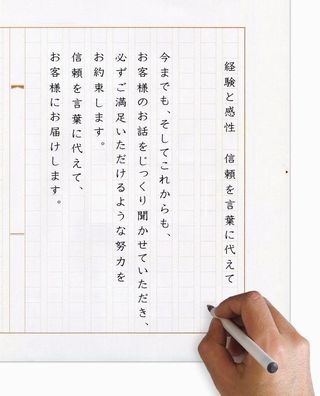 経験と感性　信頼を言葉に代えて
今までも、そしてこれからも、
お客様のお話をじっくり聞かせていただき、
必ずご満足いただけるような努力を
お約束します。
信頼を言葉に代えて、
お客様にお届けします。